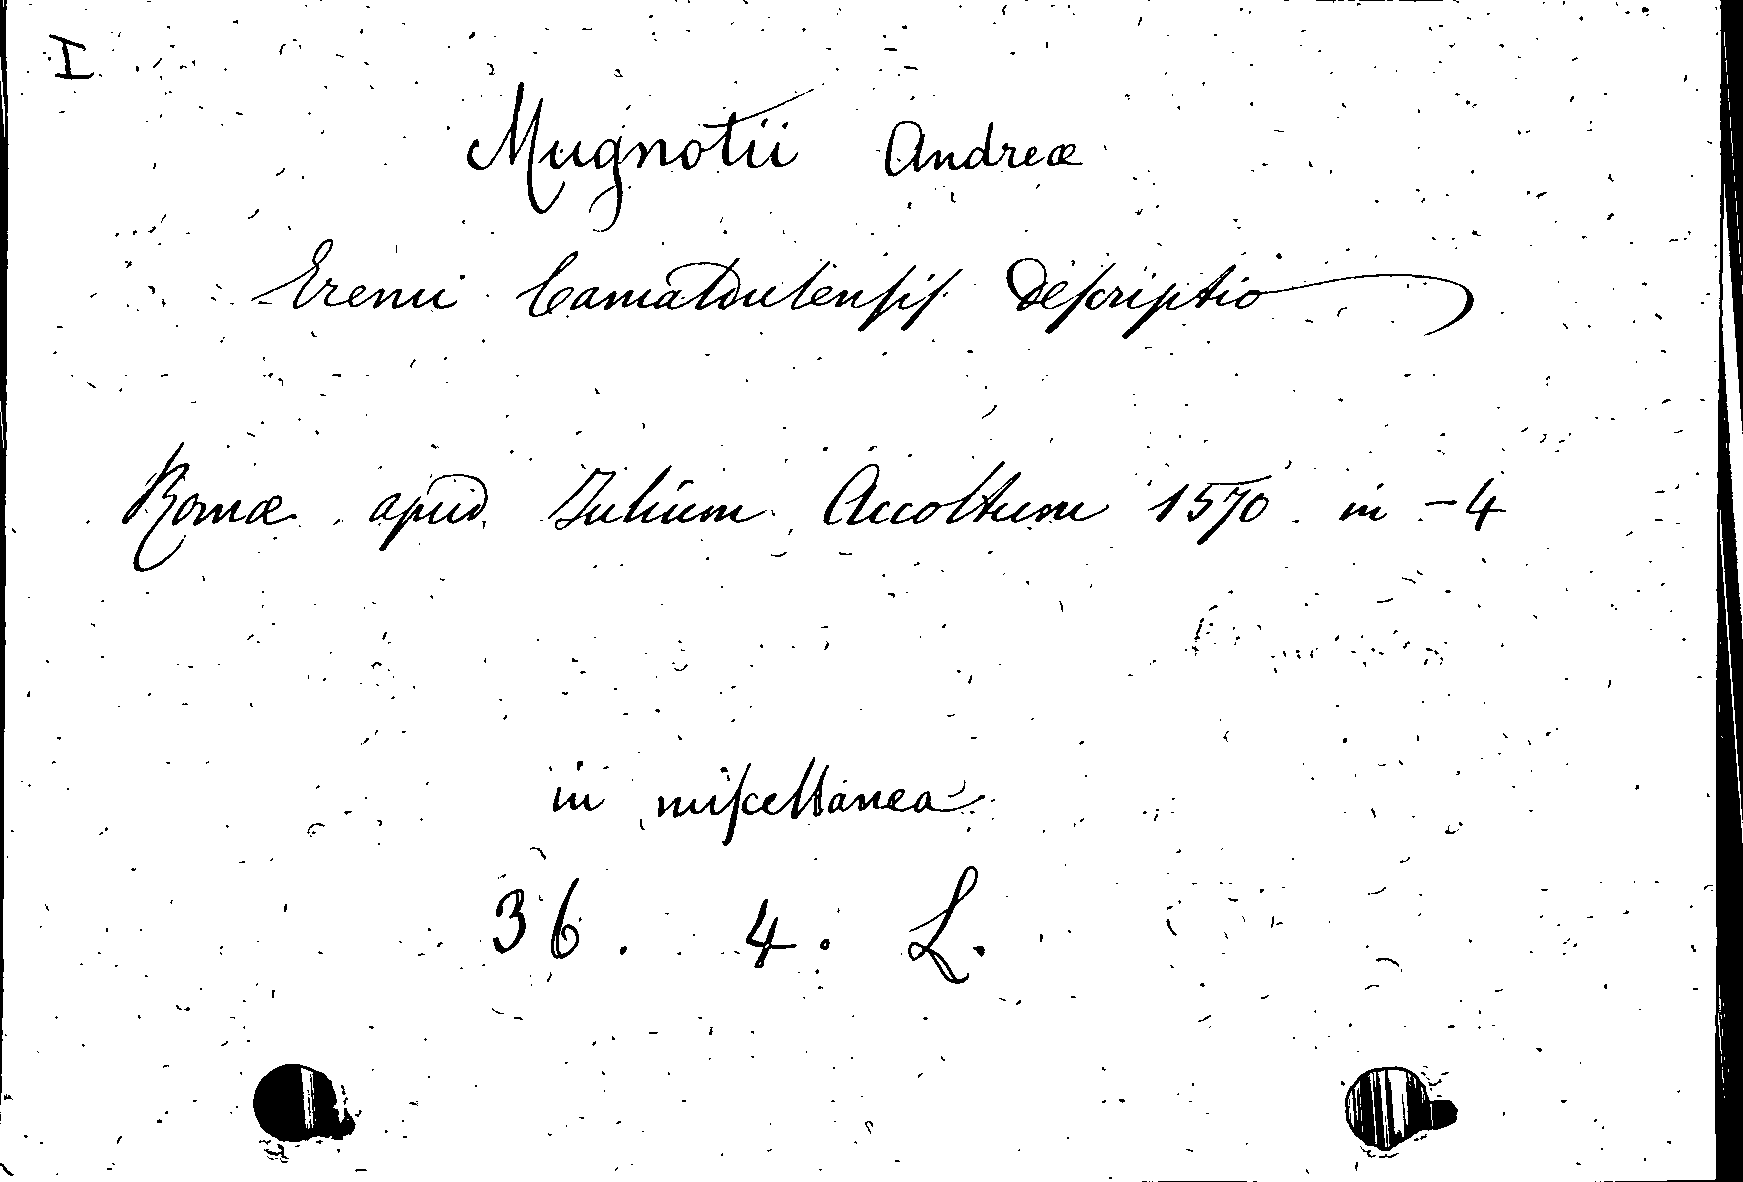 I
Mugnotii Andreæ
Eremi Camaldulensis descriptio
Romæ apud Iulium Accoltum 1570 in-4
in miscellanea
36. 4. L.